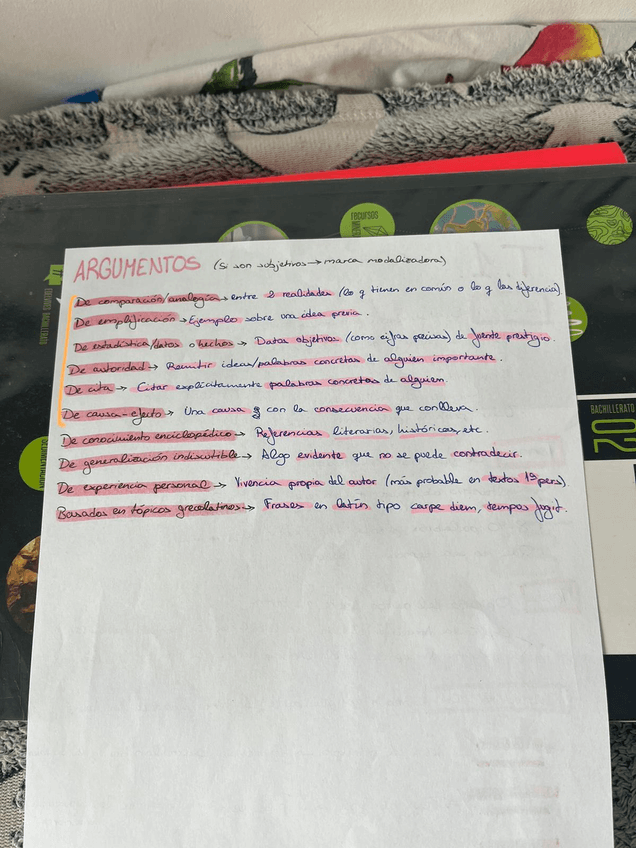 RECURSOS
ARGUMENTOS (Si son subjetivos → marca modalizadora)
De comparación/analogía → entre 2 realidades (lo q tienen en común o lo q las diferencia)
De emplificación → Ejemplo sobre una idea previa.
De estadística/datos o hechos → Datos objetivos (como cifras precisas) de fuente prestigio.
De autoridad → Remitir ideas/palabras concretas de alguien importante.
De cita → Citar explícitamente palabras concretas de alguien.
De causa-efecto → Una causa con la consecuencia que conlleva.
De conocimiento enciclopédico → Referencias literarias, históricas, etc.
De generalización indiscutible → Algo evidente que no se puede contradecir.
De experiencia personal → Vivencia propia del autor (más probable en textos 1ª pers)
Basados en tópicos grecolatinos → Frases en latín tipo carpe diem, tempus fugit.
BACHILLERATO